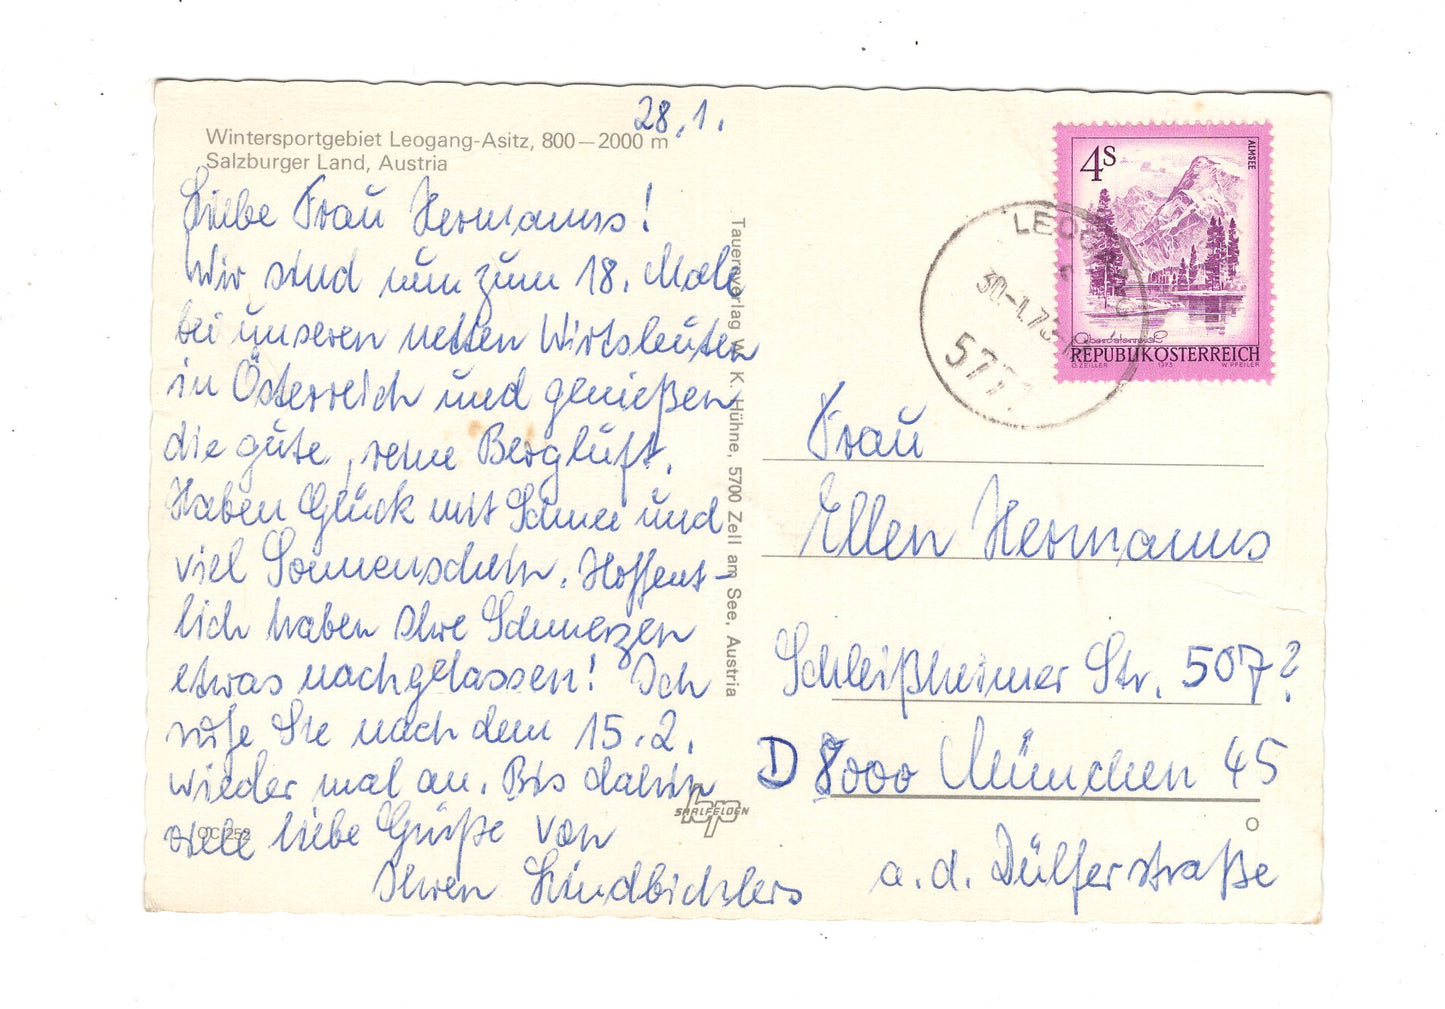 28.1.
Wintersportgebiet Leogang-Asitz, 800—2000 m
Salzburger Land, Austria
Liebe Frau Hermanns!
Wir sind nun zum 18. Male
bei unseren netten Wirtsleuten
in Österreich und genießen
die gute, reine Bergluft.
Haben Glück mit Schnee und
viel Sonnenschein. Hoffent-
lich haben Ihre Schmerzen
etwas nachgelassen! Ich
rufe Sie nach dem 15.2.
wieder mal an. Bis dahin
viele liebe Grüße von
Ihren Lindbichlers
OC 252
Tauernverlag W. K. Hühne, 5700 Zell am See, Austria
hp
SAALFELDEN
4S
ALMSEE
Oberösterreich
REPUBLIK ÖSTERREICH
O. ZEILLER 1973 W. PFEILER
LEOGANG
30.-1.75
5771
Frau
Ellen Hermanns
Schleißheimer Str. 507?
D 8000 München 45
a.d. Dülferstraße